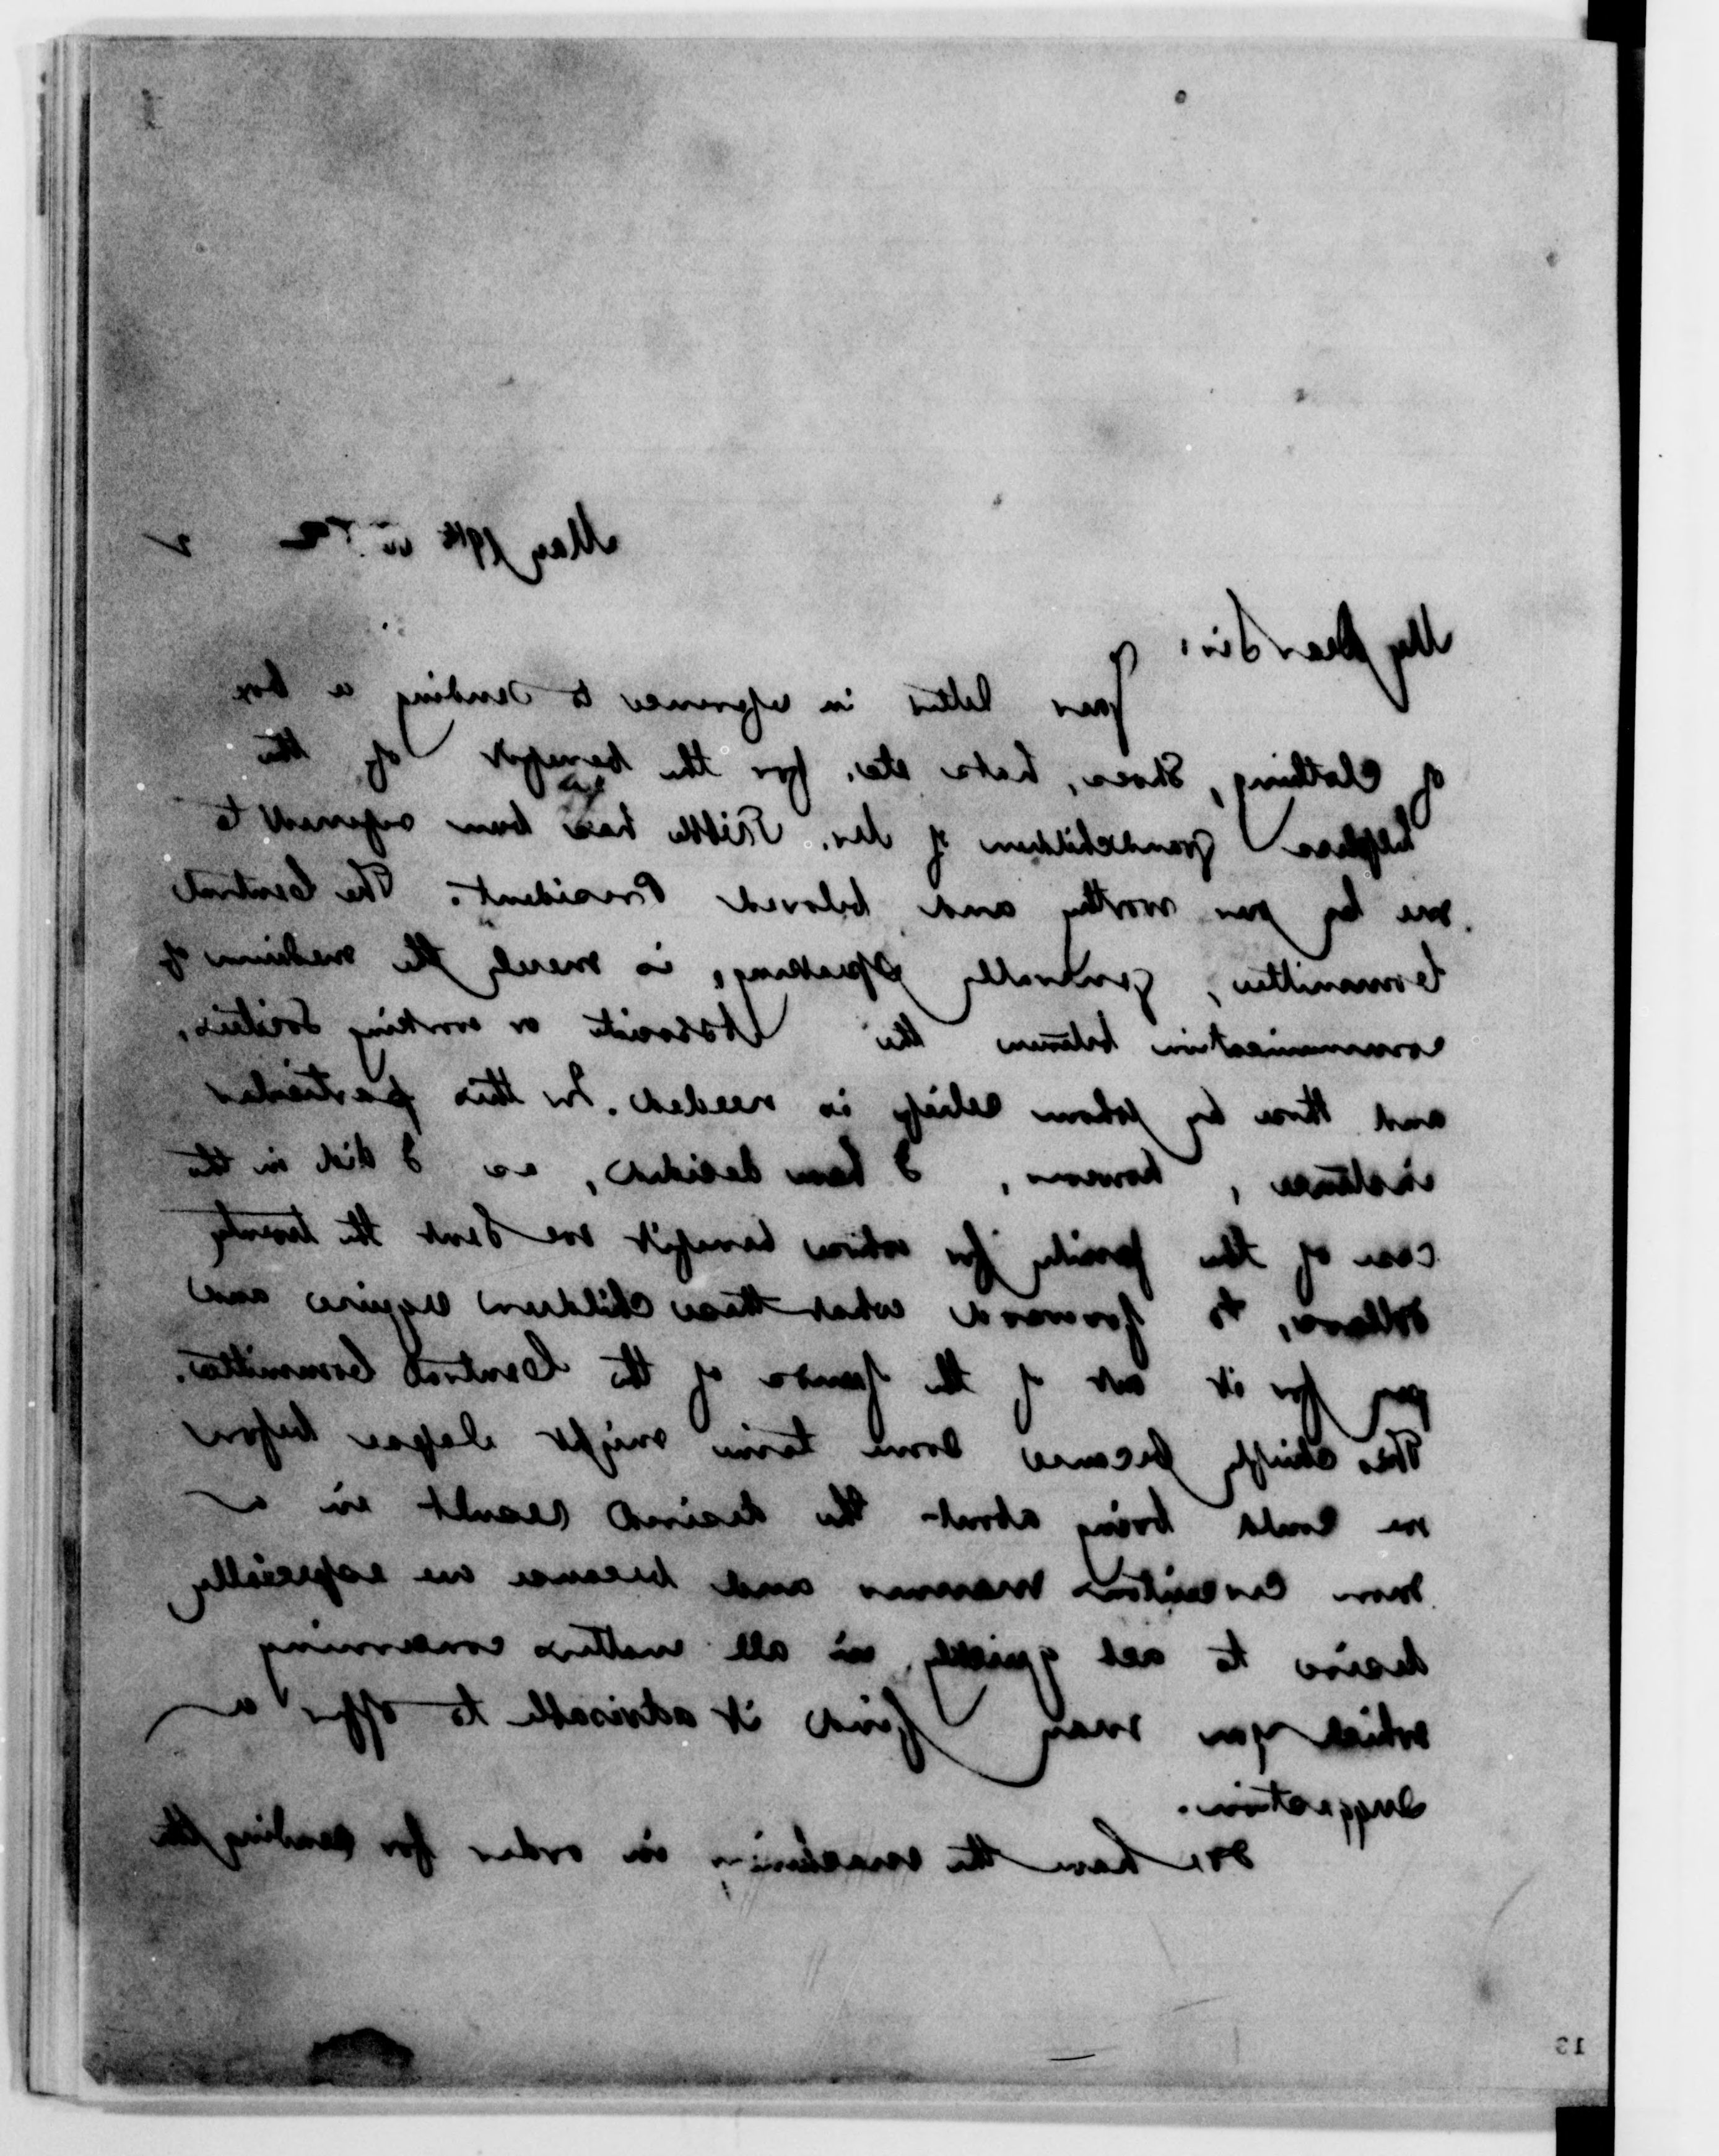 May 19th
My dear Sir,
Your letter in reference to sending a box
of clothing, shoes, hats etc. for the benefit of the
helpless grandchildren of Mr. has been referred to
me by your worthy and beloved President. The Central
Committee, generally speaking, is merely the medium of
communication between the Associate or working Societies,
and those by whom relief is needed. In this particular
instance, however, I have decided, as I did in the
case of the family for whose benefit we sent the twenty
dollars, to forward what these children require and
pay for it out of the funds of the Central Committee.
This chiefly because some time might elapse before
we could bring about the desired result in a
more circuitous manner and because we especially
desire to act quickly in all matters concerning
which you may find it advisable to offer a
suggestion.
We have the machinery in order for sending the
13